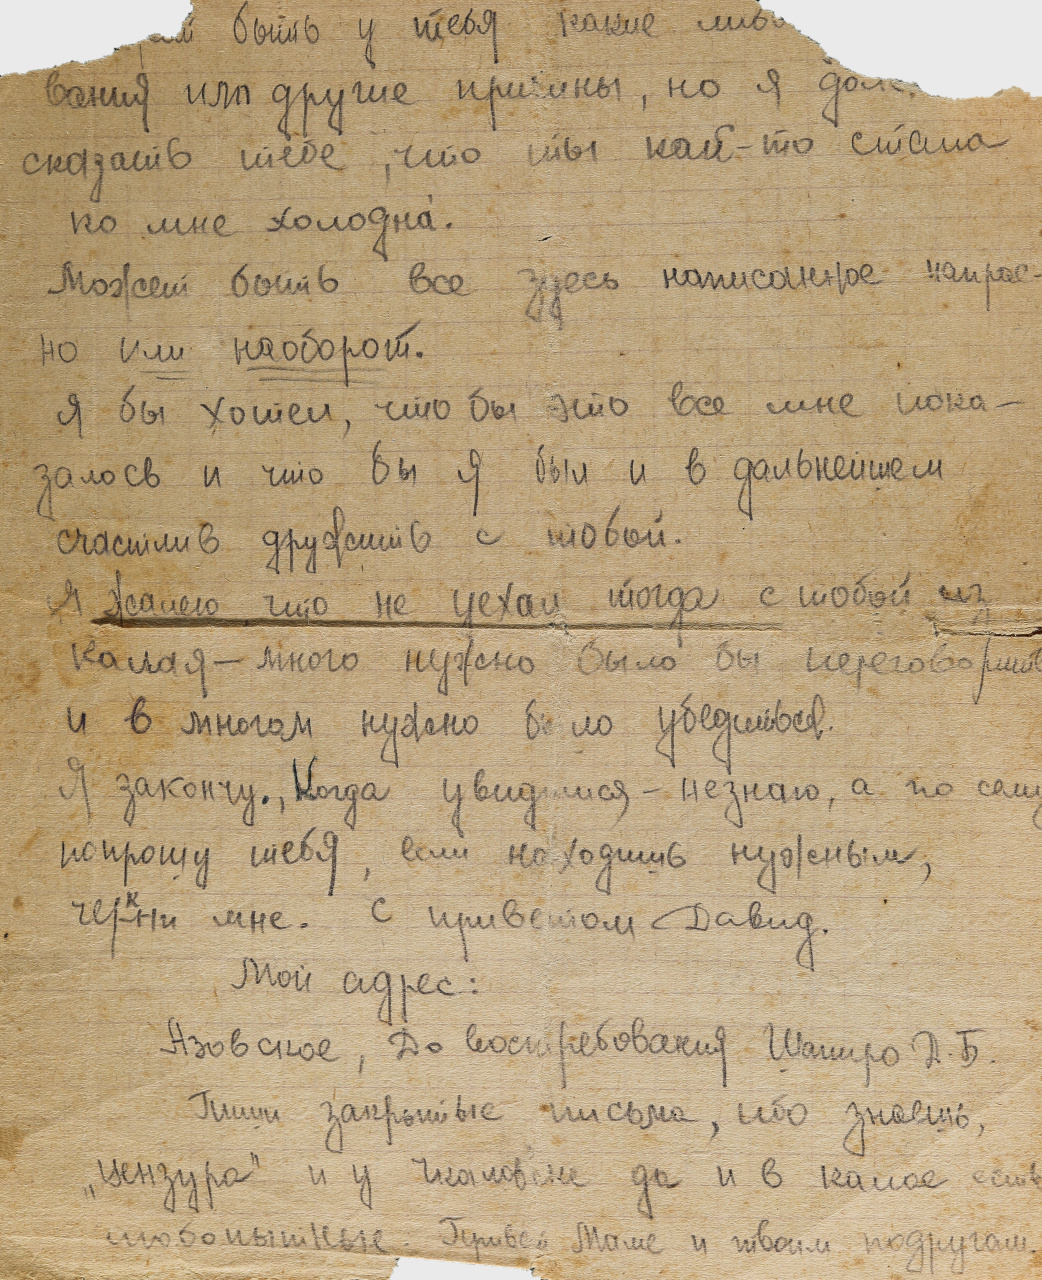 быть у тебя какие либо
вания или другие причины, но я долж
сказать тебе, что ты как-то стала
ко мне холодна.
Может быть все здесь написанное напрас-
но или наоборот.
Я бы хотел, что бы это все мне пока-
залось и что бы я был и в дальнейшем
счастлив дружить с тобой.
Я жалею что не уехал тогда с тобой из
Калая – много нужно было бы переговорить
и в многом нужно было убедиться.
Я закончу., Когда увидимся – незнаю, а по сему
попрошу тебя, если находишь нужным,
черкни мне. С приветом Давид.
Мой адрес:
Азовское, До востребования Шапиро Д.Б.
Пиши закрытые письма, ибо знаешь,
„цензура" и у да и в Калае есть
любопытные. Привет Маме и твоим подругам.